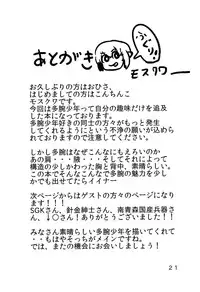 あとがき
モスクワー
お久しぶりの方はおひさ、
はじめましての方はこんちんこ
モスクワです。
今回は多腕少年って自分の趣味だけを追及
した本になっております。
多腕好きの同士の方々がもっと発生
してくれないかという不浄の願いが込めら
れておりますのでご注意してください。
しかし多腕はなぜこんなにもえろいのか
あの肩・・・腋・・・そしてそれによって
構造の少しかわった胸と背中、素晴らしい。
この本でそんなこんなで多腕の魅力を少し
でも出せてたらイイナー
次ページからはゲストの方々のページになります!
SGKさん、針金紳士さん、南青森国産兵器さ
ん、↓○さん!ありがとうございました!!
みなさん素晴らしい多腕少年を描いてくれて
・・・もはやそっちがメインですね。
では、またの機会にお会いしましょう!
21